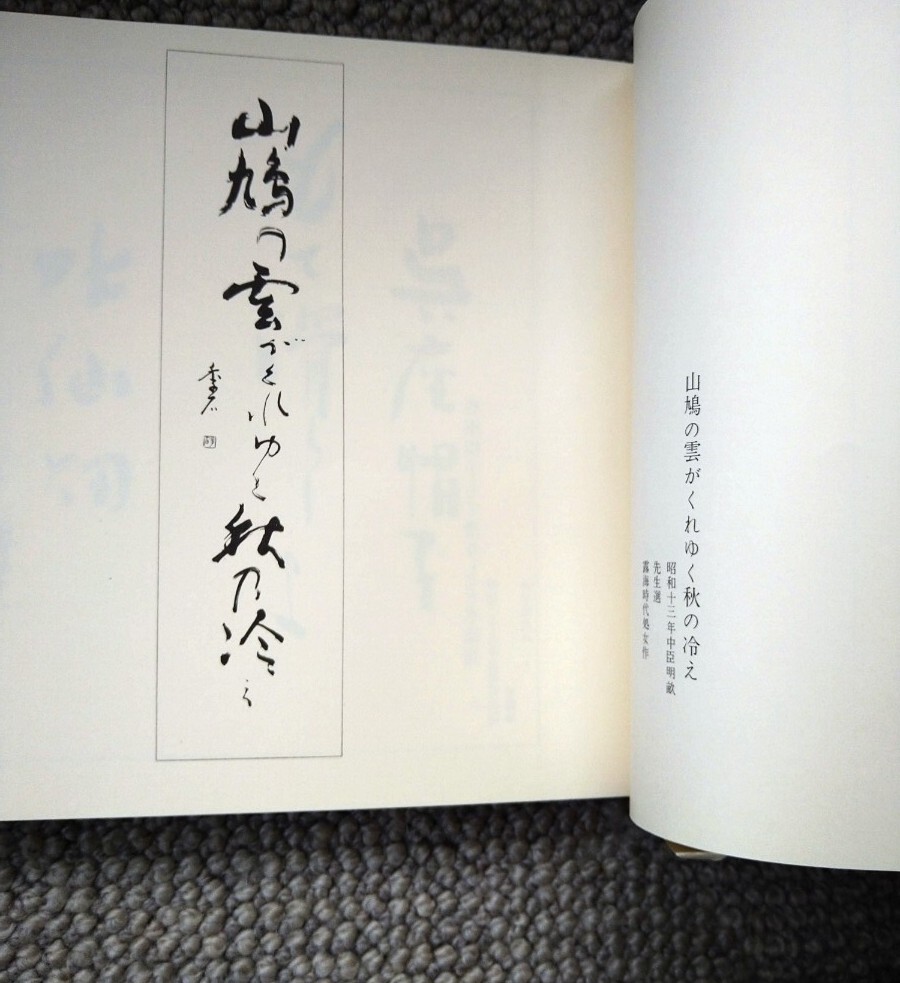 山鳩の雲がくれゆく秋の冷え
昭和十三年中臣明敵
先生選
露海時代処女作
山鳩の雲がくれゆく秋乃冷え